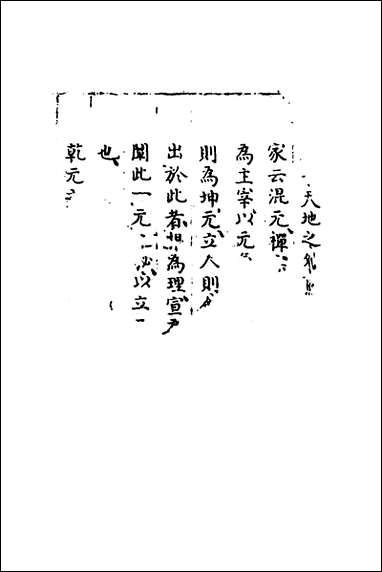 天地之
家云混元禪
為主宰以元
則為坤元立人則
出於此者 為理宣
闡此一元 必以立一
也
乾元